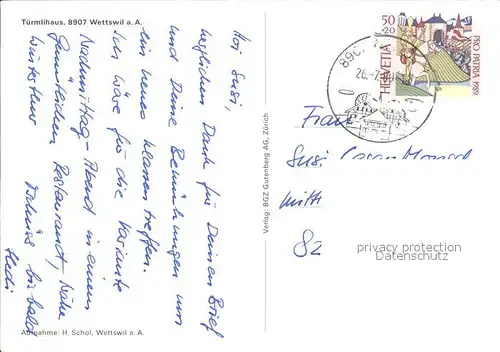 Türmlihaus, 8907 Wettswil a. A.
Hoi Susi,
herzlichen Dank für Deinen Brief
und Deine Bemühungen um
ein neues Klassentreffen.
Ich wäre für die Variante
Nachmittag - Abend in einem
gemütlichen Restaurant, Nähe
Winterthur
Tschüss bis bald
Hedi
Aufnahme: H. Schol, Wettswil a. A.
Verlag: BGZ Gutenberg AG, Zürich
50
+20
HELVETIA
PRO PATRIA 1989
890
26.-7.
Frau
Susi
82
privacy protection
Datenschutz